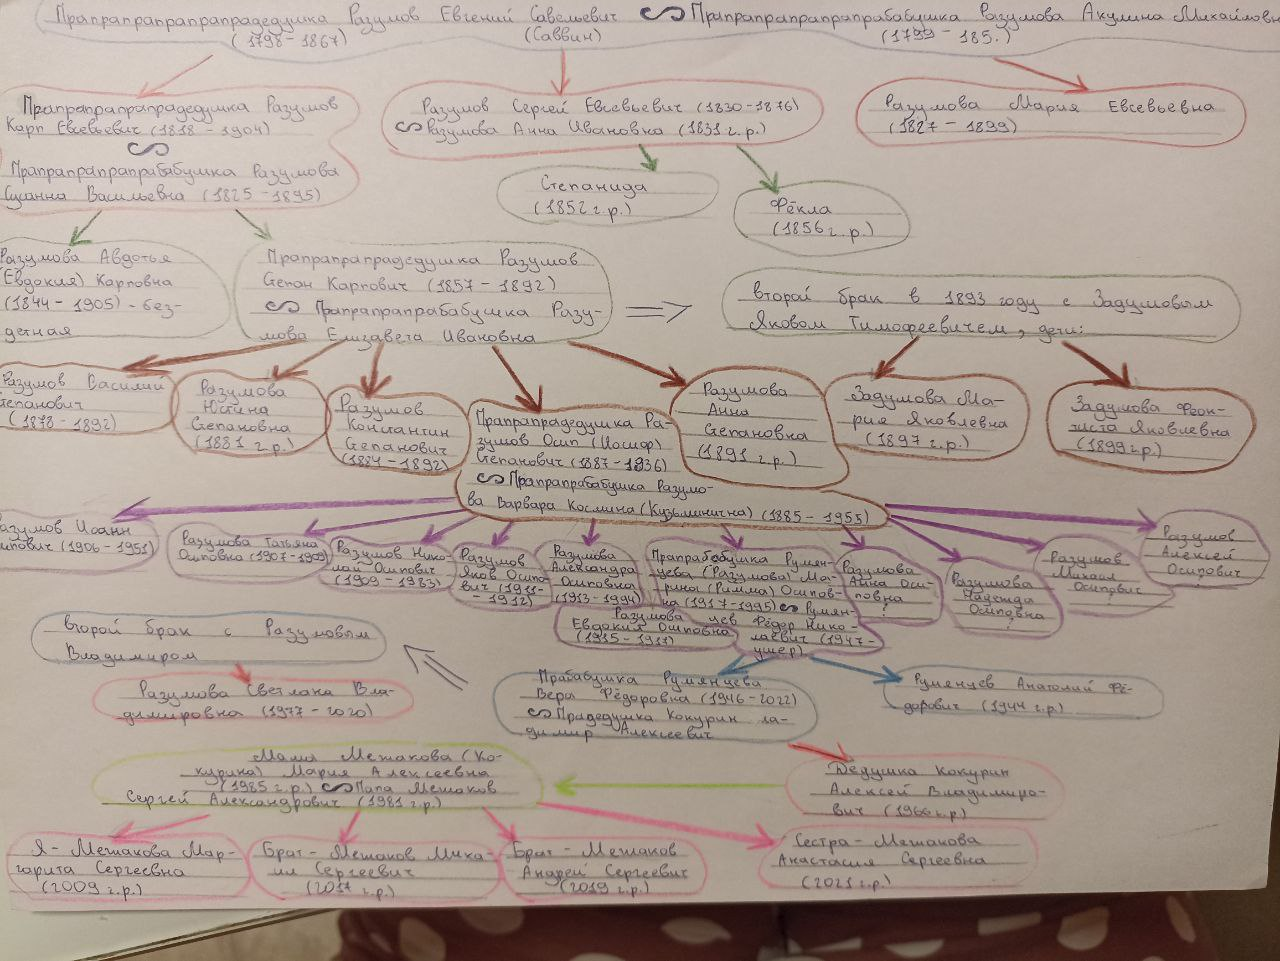 Прапрапрапрапрадедушка Разумов Евгений Савельевич ∽ Прапрапрапрапрабабушка Разумова Акулина Михайловн
(1798-1867) (Саввин) (1799-185.)
Прапрапрапрадедушка Разумов
Карп Евсевьевич (1818-1904)
∽
Прапрапрапрабабушка Разумова
Сусанна Васильевна (1825-1895)
Разумов Сергей Евсевьевич (1830-1876)
∽ Разумова Анна Ивановна (1831 г.р.)
Разумова Мария Евсевьевна
(1827-1899)
Степанида
(1852 г.р.)
Фёкла
(1856 г.р.)
Разумова Авдотья
(Евдокия) Карповна
(1844-1905) - без-
детная
Прапрапрапрадедушка Разумов
Степан Карпович (1857-1892)
∽ Прапрапрапрабабушка Разу-
мова Елизавета Ивановна
второй брак в 1893 году с Задумовым
Яковом Тимофеевичем, дети:
Разумов Василий
Степанович
(1878-1892)
Разумова
Юстина
Степановна
(1881 г.р.)
Разумов
Константин
Степанович
(1884-1892)
Прапрапрадедушка Ра-
зумов Осип (Иосиф)
Степанович (1887-1936)
∽ Прапрапрабабушка Разумо-
ва Варвара Космина (Кузьминична) (1885-1955)
Разумова
Анна
Степановна
(1891 г.р.)
Задумова Ма-
рия Яковлевна
(1897 г.р.)
Задумова Феок-
тиста Яковлевна
(1899 г.р.)
Разумов Иоанн
Осипович (1906-1951)
Разумова Татьяна
Осиповна (1907-1909)
Разумов Нико-
лай Осипович
(1909-1983)
Разумов
Яков Осипо-
вич (1911-
-1912)
Разумова
Александра
Осиповна
(1913-1994)
Разумова
Евдокия Осиповна
(1915-1917)
Прапрабабушка Румян-
цева (Разумова) Ма-
рина (Римма) Осипов-
на (1917-1995) ∽ Румян-
цев Фёдор Нико-
лаевич (1947-
умер)
Разумова
Анна Оси-
повна
?
Разумова
Надежда
Осиповна
?
Разумов
Михаил
Осипович
?
Разумов
Алексей
Осипович
второй брак с Разумовым
Владимиром
Разумова Светлана Вла-
димировна (1977-2020)
Прабабушка Румянцева
Вера Фёдоровна (1946-2022)
∽ Прадедушка Кокурин ла-
димир Алексеевич
Румянцев Анатолий Фё-
дорович (1944 г.р.)
Мама Мешакова (Ко-
курина) Мария Алексеевна
(1985 г.р.) ∽ Папа Мешаков
Сергей Александрович (1981 г.р.)
Дедушка Кокурин
Алексей Владимиро-
вич (1966 г.р.)
Я - Мешакова Мар-
гарита Сергеевна
(2009 г.р.)
Брат - Мешаков Миха-
ил Сергеевич
(2017 г.р.)
Брат - Мешаков
Андрей Сергеевич
(2019 г.р.)
Сестра - Мешакова
Анастасия Сергеевна
(2021 г.р.)